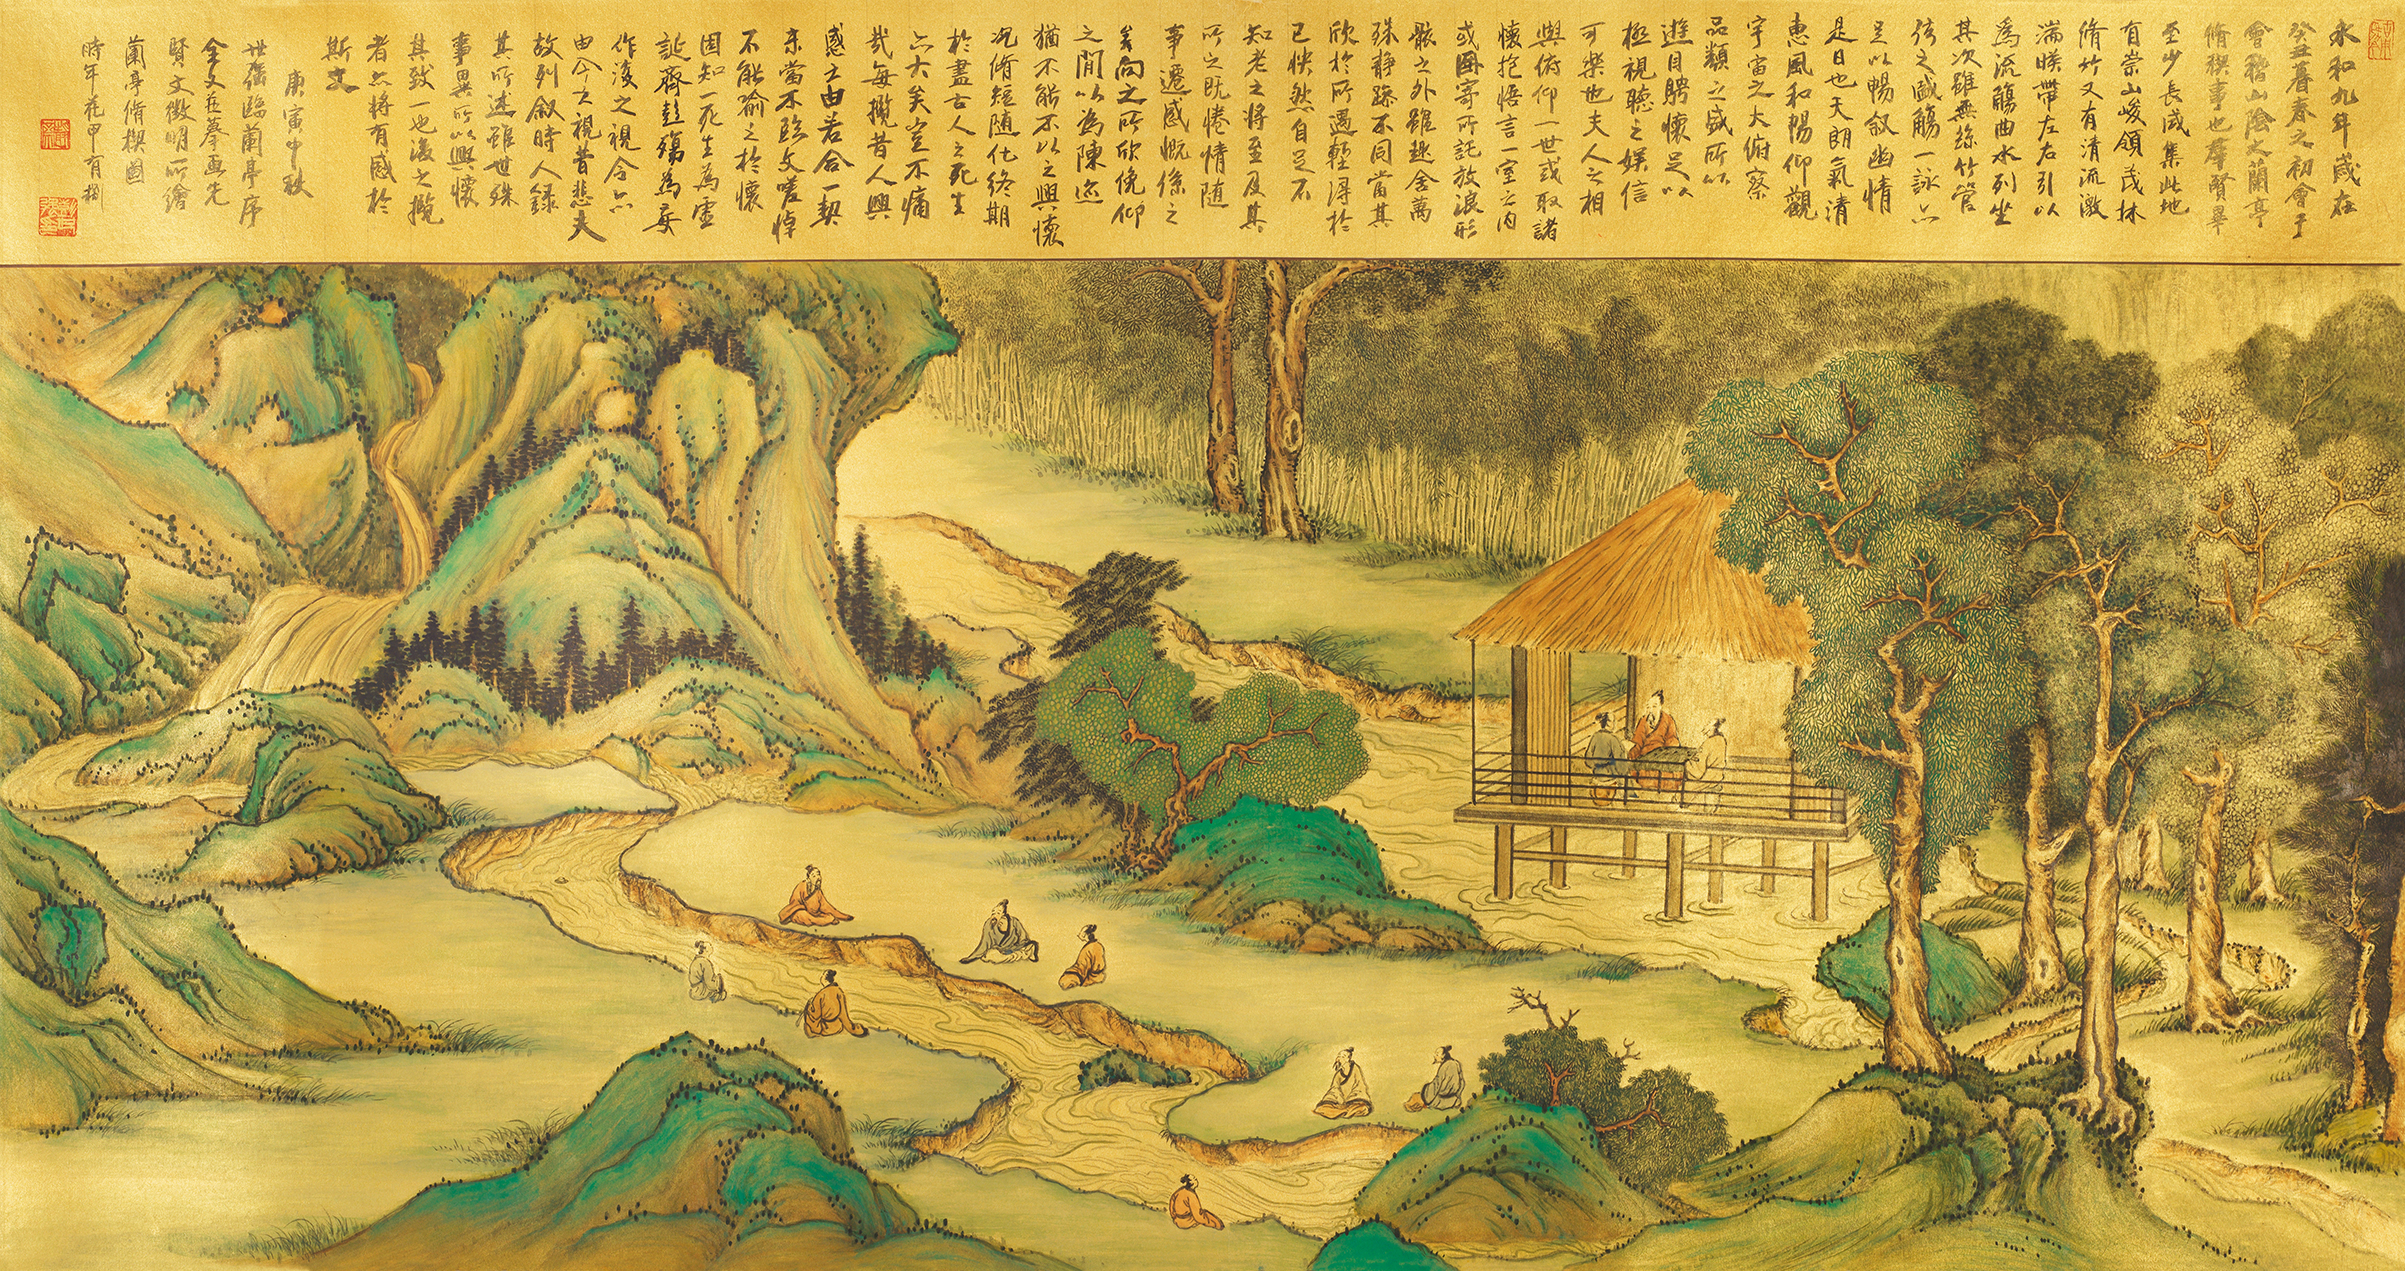 永和九年歲在
癸丑暮春之初會于
會稽山陰之蘭亭
脩禊事也羣賢畢
至少長咸集此地
有崇山峻領茂林
脩竹又有清流激
湍暎帶左右引以
為流觴曲水列坐
其次雖無絲竹管
弦之盛觴一詠亦
足以暢敘幽情
是日也天朗氣清
惠風和暢仰觀
宇宙之大俯察
品類之盛所以
遊目騁懷足以
極視聽之娛信
可樂也夫人之相
與俯仰一世或取諸
懷抱悟言一室之內
或因寄所託放浪形
骸之外雖趣舍萬
殊靜躁不同當其
欣於所遇暫得於
己怏然自足不
知老之將至及其
所之既惓情隨
事遷感慨係之
矣向之所欣俛仰
之間以為陳迹
猶不能不以之興懷
況脩短隨化終期
於盡古人之死生
亦大矣豈不痛
哉每攬昔人興
感之由若合一契
未嘗不臨文嗟悼
不能喻之於懷
固知一死生為虛
誕齊彭殤為妄
作後之視今亦
由今之視昔悲夫
故列敘時人錄
其所述雖世殊
事異所以興懷
其致一也後之攬
者亦將有感於
斯文
庚寅中秋
世強臨蘭亭序
全文在摹画先
賢文徵明所繪
蘭亭脩禊圖
時年花甲有捌